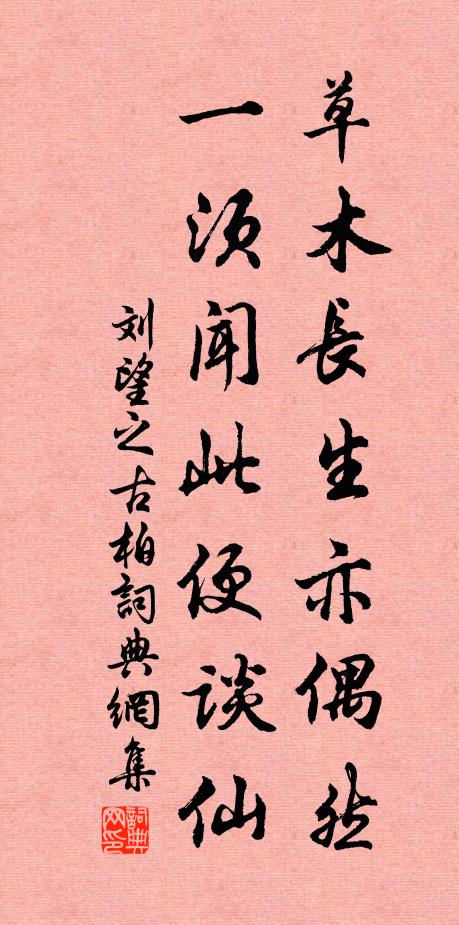 草木長生亦偶然
一须闻此便谈仙
刘望之古柏詞典網集
詞典网印